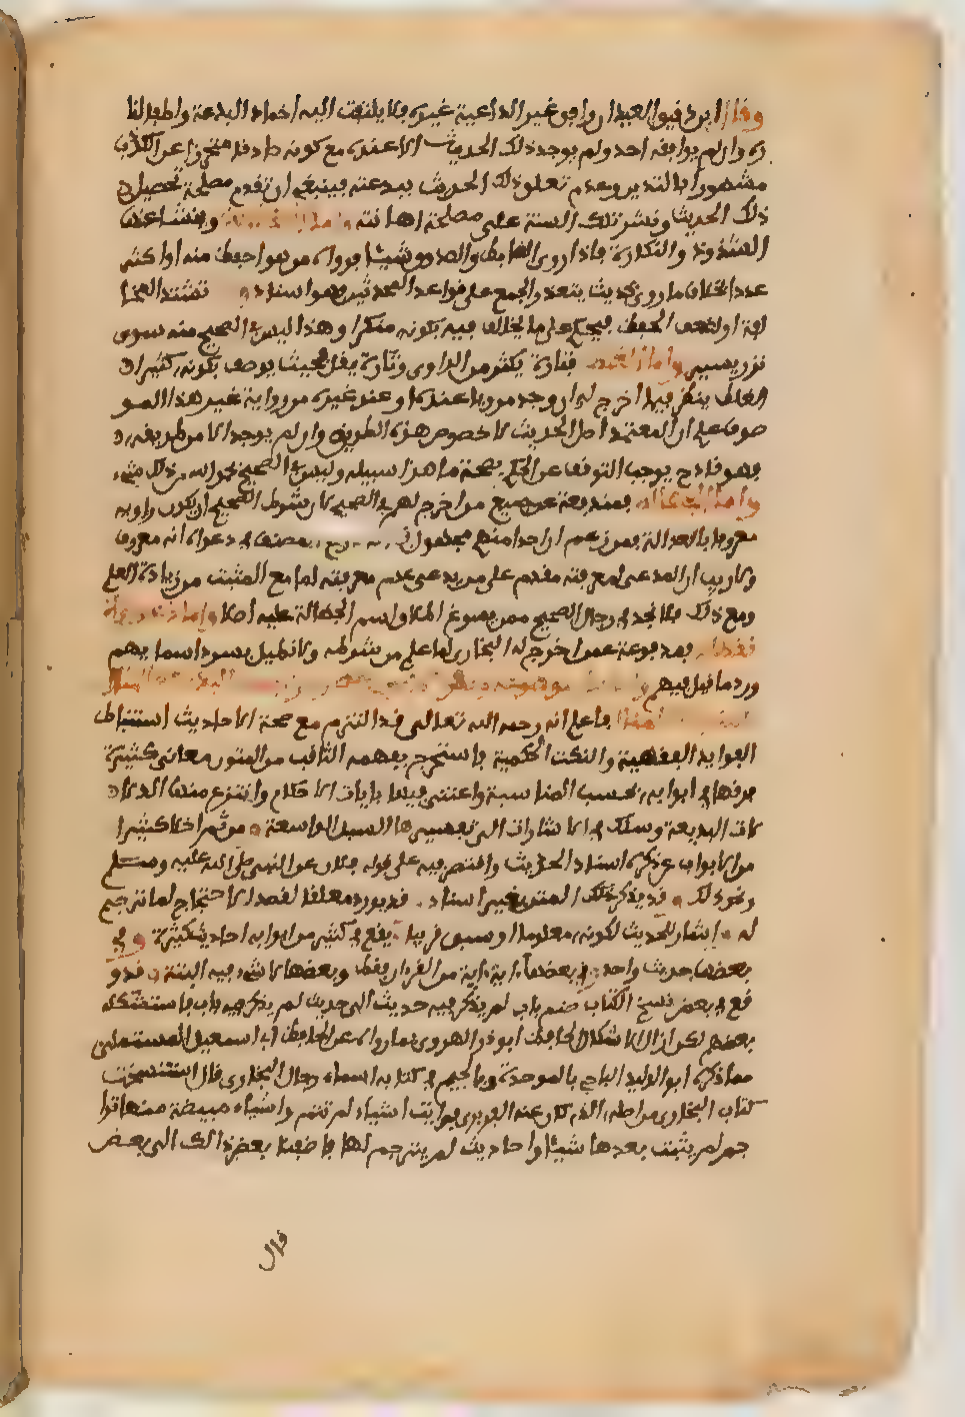 وقال ابن دقيق العيد ان وافق غير الداعية غيره فلا يلتفت اليه اخمادا لبدعته واطفاء لنا
ره وان لم يوافقه احد ولم يوجد ذلك الحديث الا عنده مع كونه صادقا متحرزا عن الكذب
مشهورا بالتدين وعدم تعلق ذلك الحديث ببدعته فينبغي ان تقدم مصلحة تحصيل
ذلك الحديث ونشر تلك السنة على مصلحة اهانته
الشذوذ والنكارة فاذا روى الضابط والصدوق شيئا فرواه من هو احفظ منه او اكثر
عددا بخلاف ما روى بحيث يتعذر الجمع على قواعد المحدثين فهو شاذ وقد تشتد المخا
لفة او يضعف الحفظ فيحكم على ما يخالف فيه بكونه منكرا وهذا ليس في الصحيح منه سوى
نزر يسير واما الغلط فتارة يكثر من الراوي وتارة يقل فحيث يوصف بكونه كثير
الغلط ينظر فيما اخرج له ان وجد مرويا عنده او عند غيره من رواية غير هذا المو
صوف علم ان المعتمد اصل الحديث لا خصوص هذه الطريق وان لم يوجد الا من طريقه
فهو قادح يوجب التوقف عن الحكم بصحة ما هذا سبيله وليس في الصحيح بحمد الله من ذلك شيء
واما الجهالة فمندفعة عن جميع من اخرج لهم في الصحيح لان شرط الصحيح ان يكون راويه
معروفا بالعدالة فمن زعم ان احدا منهم مجهول فكانه نازع المصنف في دعواه انه معروف
ولا ريب ان المدعي لمعرفته مقدم على من يدعي عدم معرفته لما مع المثبت من زيادة العلم
ومع ذلك فلا نجد في رجال الصحيح ممن يسوغ اطلاق اسم الجهالة عليه اصلا
فمدفوعة عمن اخرج له البخاري لما علم من شرطه ولا نطيل بسرد اسمايهم
ورد ما قيل فيهم
فاعلم انه رحمه الله تعالى قد التزم مع صحة الاحاديث استنباط
الفوايد الفقهية والنكت الحكمية فاستخرج بفهمه الثاقب من المتون معاني كثيرة
فرقها في ابوابه بحسب المناسبة واعتنى فيها بايات الاحكام وانتزع منها الدلا
لات البديعة وسلك في الاشارات الى تفسيرها السبل الواسعة ومن ثم اخلا كثيرا
من الابواب عن ذكر اسناد الحديث واقتصر فيه على قوله فلان عن النبي صلى الله عليه وسلم
ونحو ذلك وقد يذكر المتن بغير اسناد وقد يورده معلقا لقصد الاحتجاج لما ترجم
له واشار للحديث لكونه معلوما او سبق قريبا ويقع في كثير من ابوابه احاديث كثيرة وفي
بعضها حديث واحد وفي بعضها اية من القران فقط وبعضها لا شيء فيه البتة وقد و
قع في بعض نسخ الكتاب ضم باب لم يذكر فيه حديث الى حديث لم يذكر فيه باب فاستشكله
بعضهم لكن ازال الاشكال الحافظ ابو ذر الهروي بما رواه عن الحافظ ابي اسحق المستملي
مما ذكره ابو الوليد الباجي بالموحدة وبالجيم في كتابه اسماء رجال البخاري قال استنسخت
كتاب البخاري من اصله الذي كان عند الفربري فرايت اشياء لم تتم واشياء مبيضة منها ترا
جم لم يثبت بعدها شيئا واحاديث لم يترجم لها فاضفنا بعض ذلك الى بعض
قال